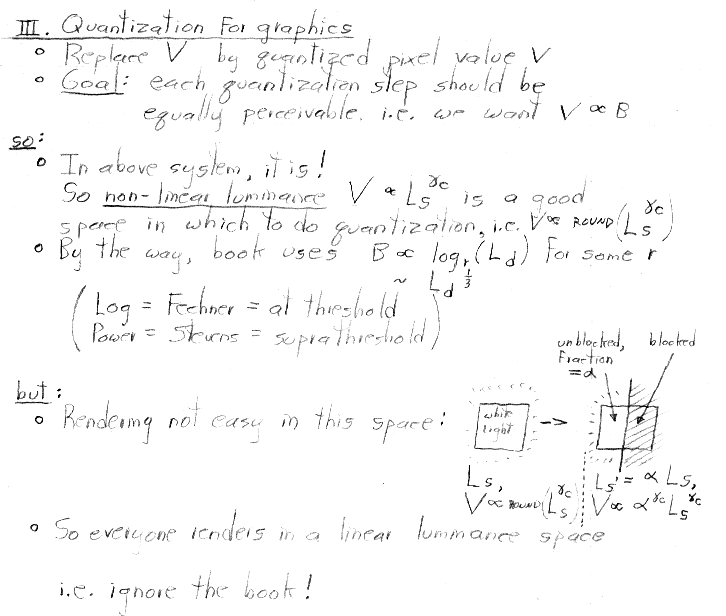 III. Quantization For graphics
o Replace V by quantized pixel value V
o Goal: each quantization step should be
equally perceivable. i.e. we want V ∝ B
so:
o In above system, it is!
So non-linear luminance V ∝ Ls^γc is a good
space in which to do quantization, i.e. V ∝ ROUND(Ls^γc)
o By the way, book uses B ∝ log_r(Ld) For some r
~ Ld^1/3
(Log = Fechner = at threshold
Power = Stevens = suprathreshold)
unblocked, blocked
Fraction
= α
but:
o Rendering not easy in this space:
white
light
->
Ls, Ls' = α Ls,
V ∝ ROUND(Ls^γc) V ∝ α^γc Ls^γc
o So everyone renders in a linear luminance space
i.e. ignore the book!